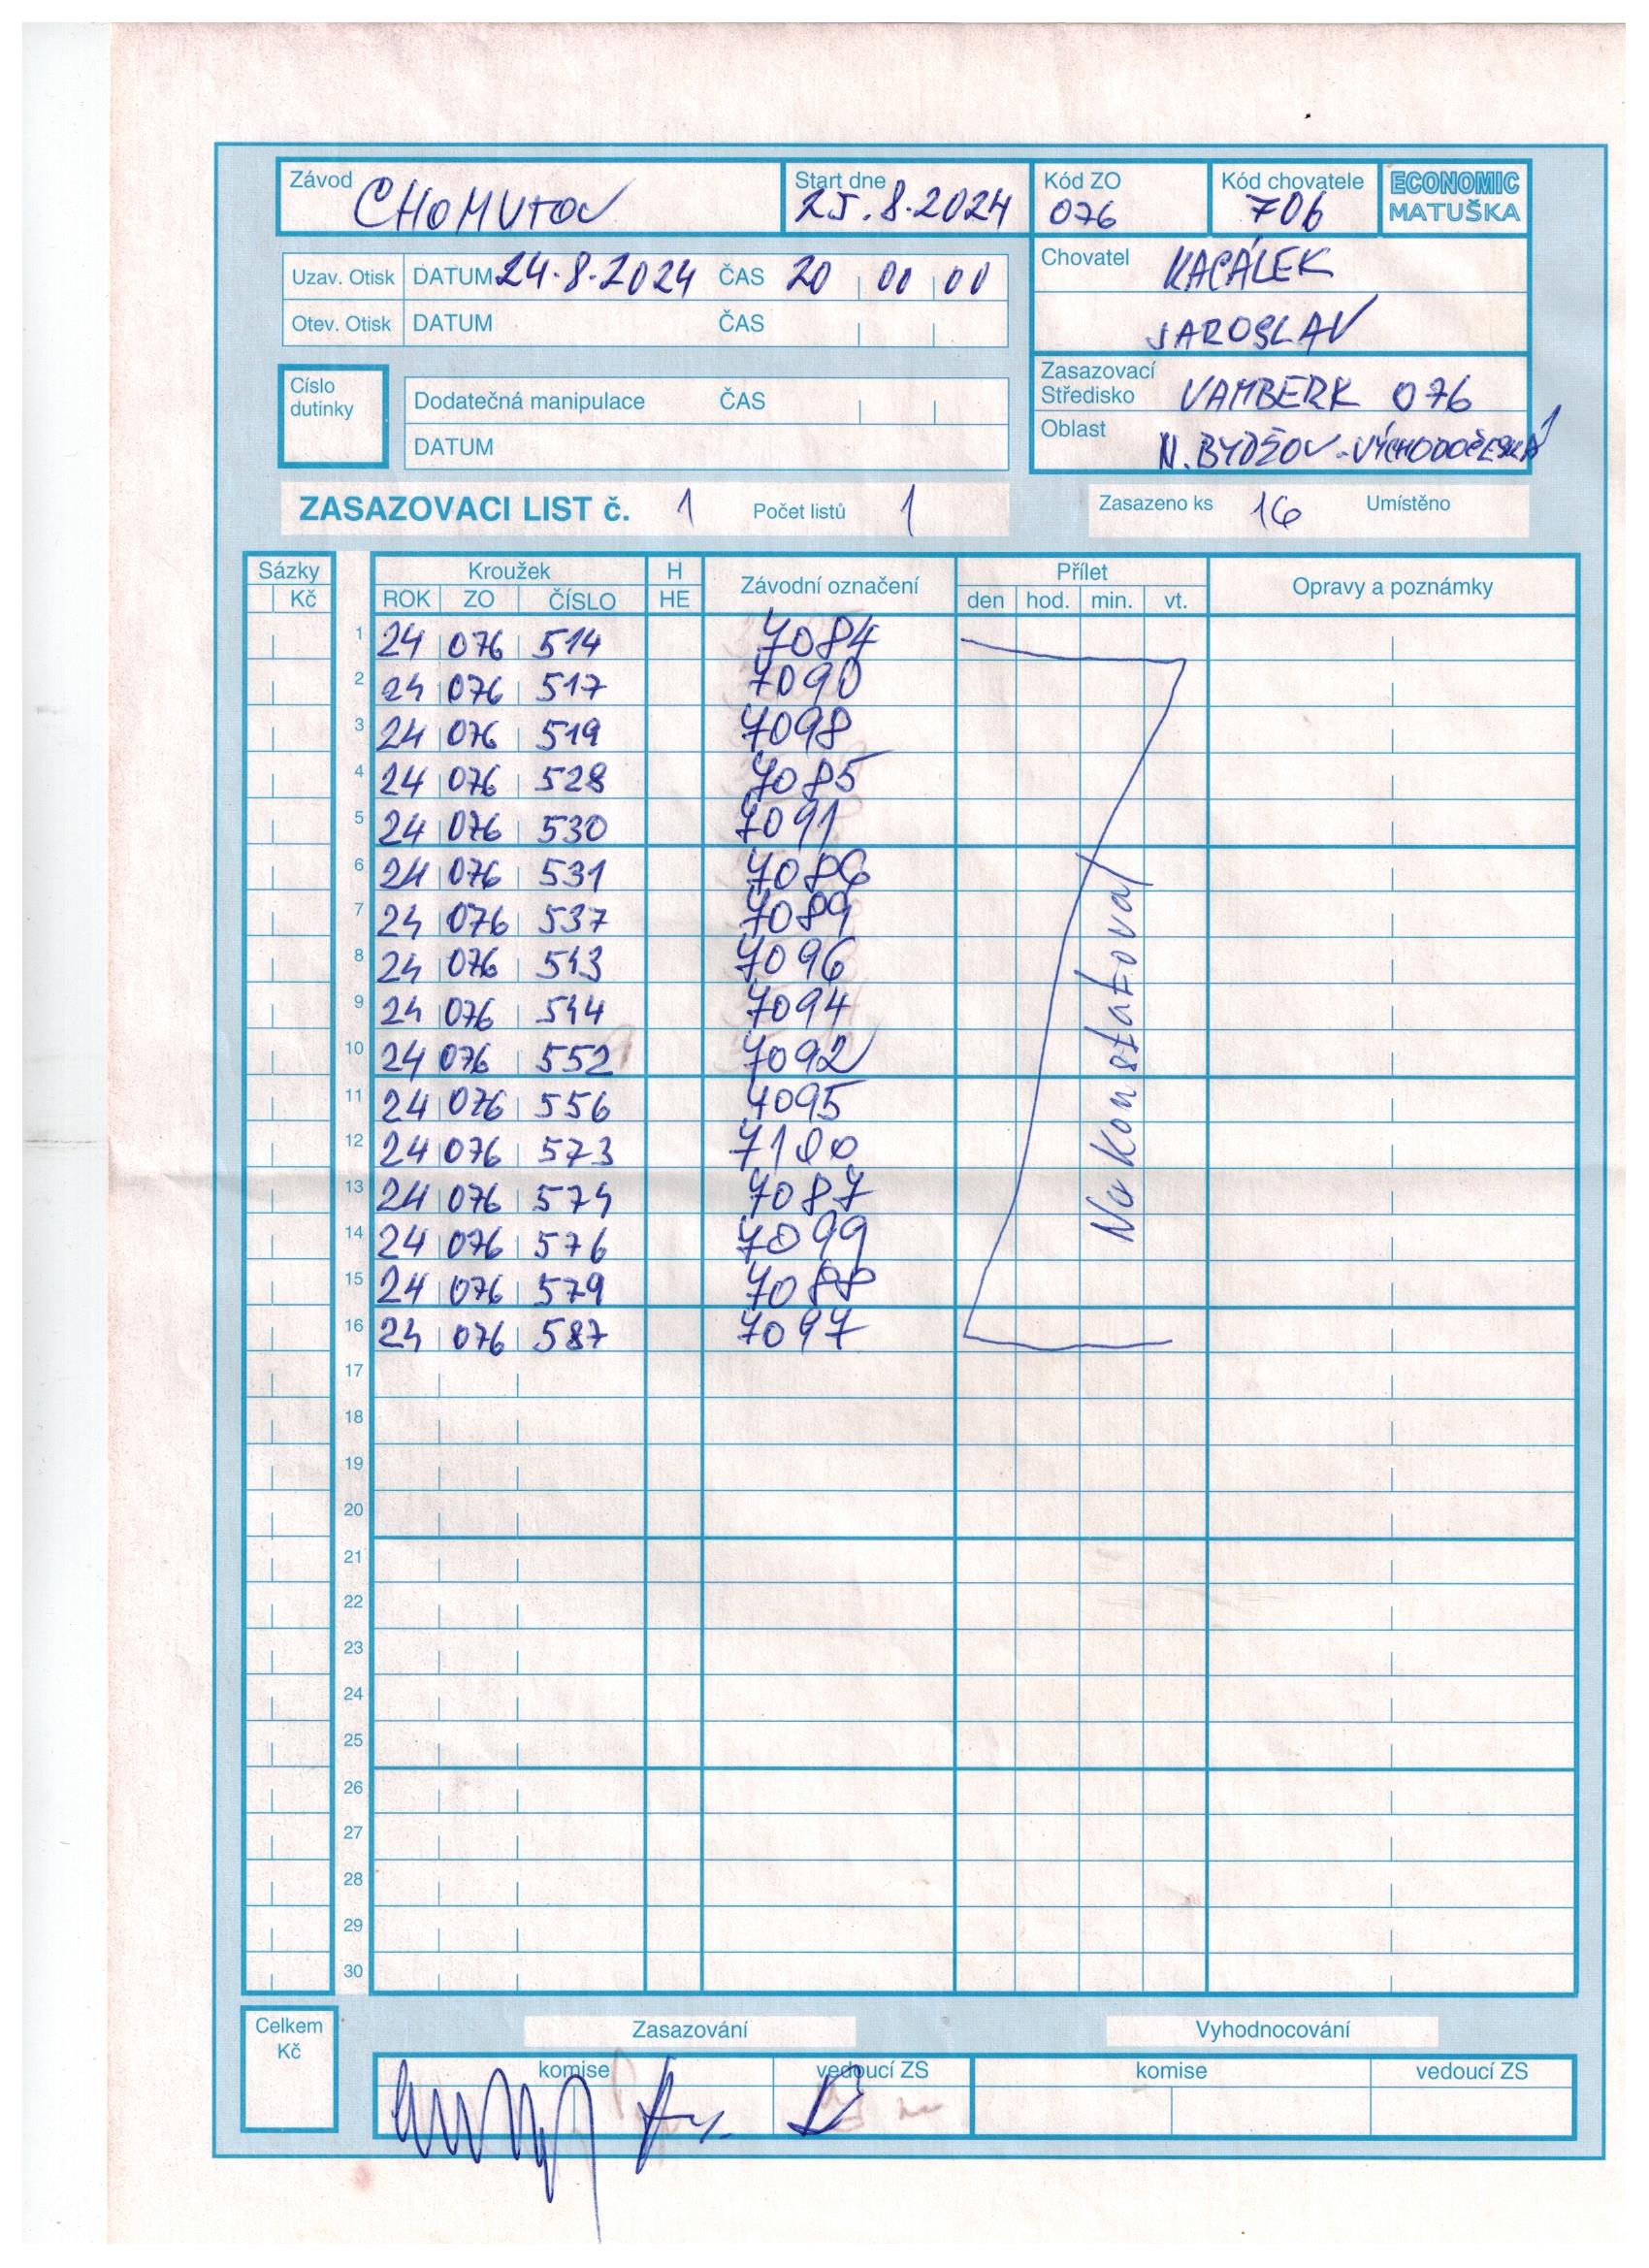 Závod CHOMUTOV Start dne 25.8.2024 Kód ZO 076 Kód chovatele 706 ECONOMIC MATUŠKA
Uzav. Otisk DATUM 24.8.2024 ČAS 20 00 00 Chovatel KACÁLEK
Otev. Otisk DATUM ČAS JAROSLAV
Číslo dutinky Dodatečná manipulace ČAS Zasazovací Středisko VAMBERK 076
DATUM Oblast N. BYDŽOV - VÝCHODOČESKÁ
ZASAZOVACI LIST č. 1 Počet listů 1 Zasazeno ks 16 Umístěno
Sázky Kroužek H Závodní označení Přílet Opravy a poznámky
Kč ROK ZO ČÍSLO HE den hod. min. vt.
1 24 076 514 7084
2 24 076 517 7090
3 24 076 519 7098
4 24 076 528 7085
5 24 076 530 7091
6 24 076 531 7086
7 24 076 537 7089
8 24 076 543 7096
9 24 076 544 7094
10 24 076 552 7092
11 24 076 556 7095
12 24 076 573 7100
13 24 076 574 7087
14 24 076 576 7099
15 24 076 579 7088
16 24 076 587 7097
17
18
19
20
21
22
23
24
25
26
27
28
29
30
Celkem Kč Zasazování Vyhodnocování
komise vedoucí ZS komise vedoucí ZS